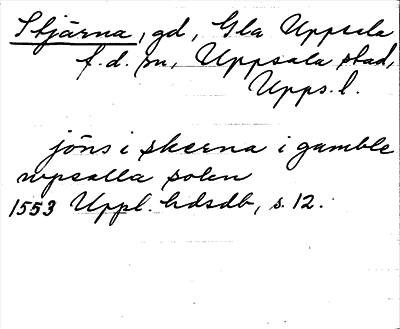 Stjärna, gd, Gla Uppsala
f.d. sn, Uppsala stad,
Upps.l.
jöns i skerna i gamble
wpsalla solen
1553 Uppl. hdsdb, s. 12.